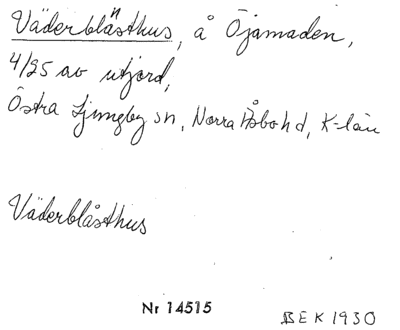 Väderblånsthus, å Öjamaden,
4/25 av utjord,
Östra Ljungby sn, Norra Åsbo hd, K-län
Väderblåsthus
Nr 14515
BEK 1930